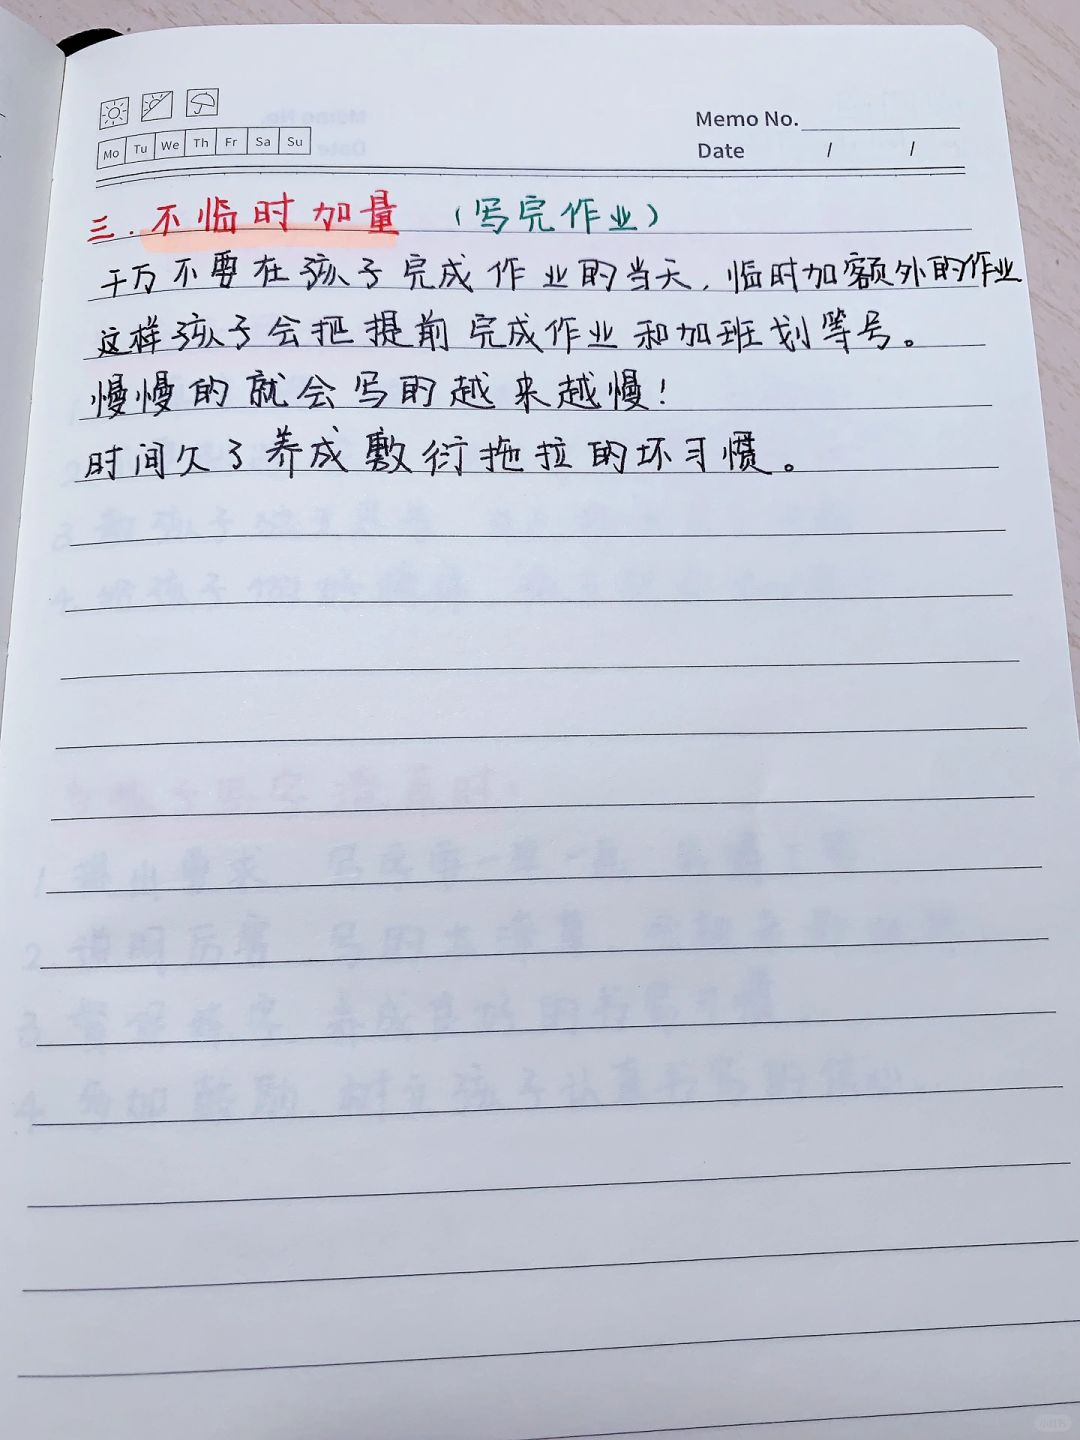 Memo No.
Mo Tu We Th Fr Sa Su
Date / /
三.不临时加量 (写完作业)
千万不要在孩子完成作业的当天,临时加额外的作业
这样孩子会把提前完成作业和加班划等号。
慢慢的就会写的越来越慢!
时间久了养成敷衍拖拉的坏习惯。